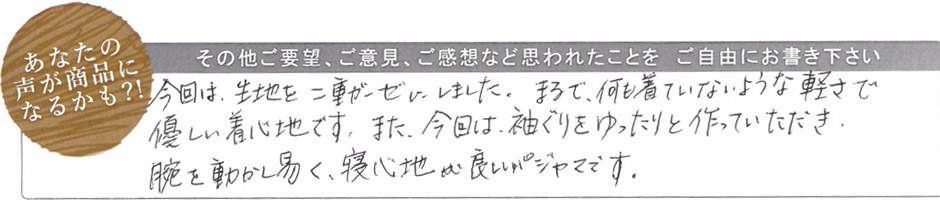 あなたの
声が商品に
なるかも?!
その他ご要望、ご意見、ご感想など思われたことを ご自由にお書き下さい
今回は、生地を二重ガーゼにしました。まるで、何も着ていないような軽さで
優しい着心地です。また、今回は、袖ぐりをゆったりと作っていただき、
腕を動かし易く、寝心地が良いパジャマです。